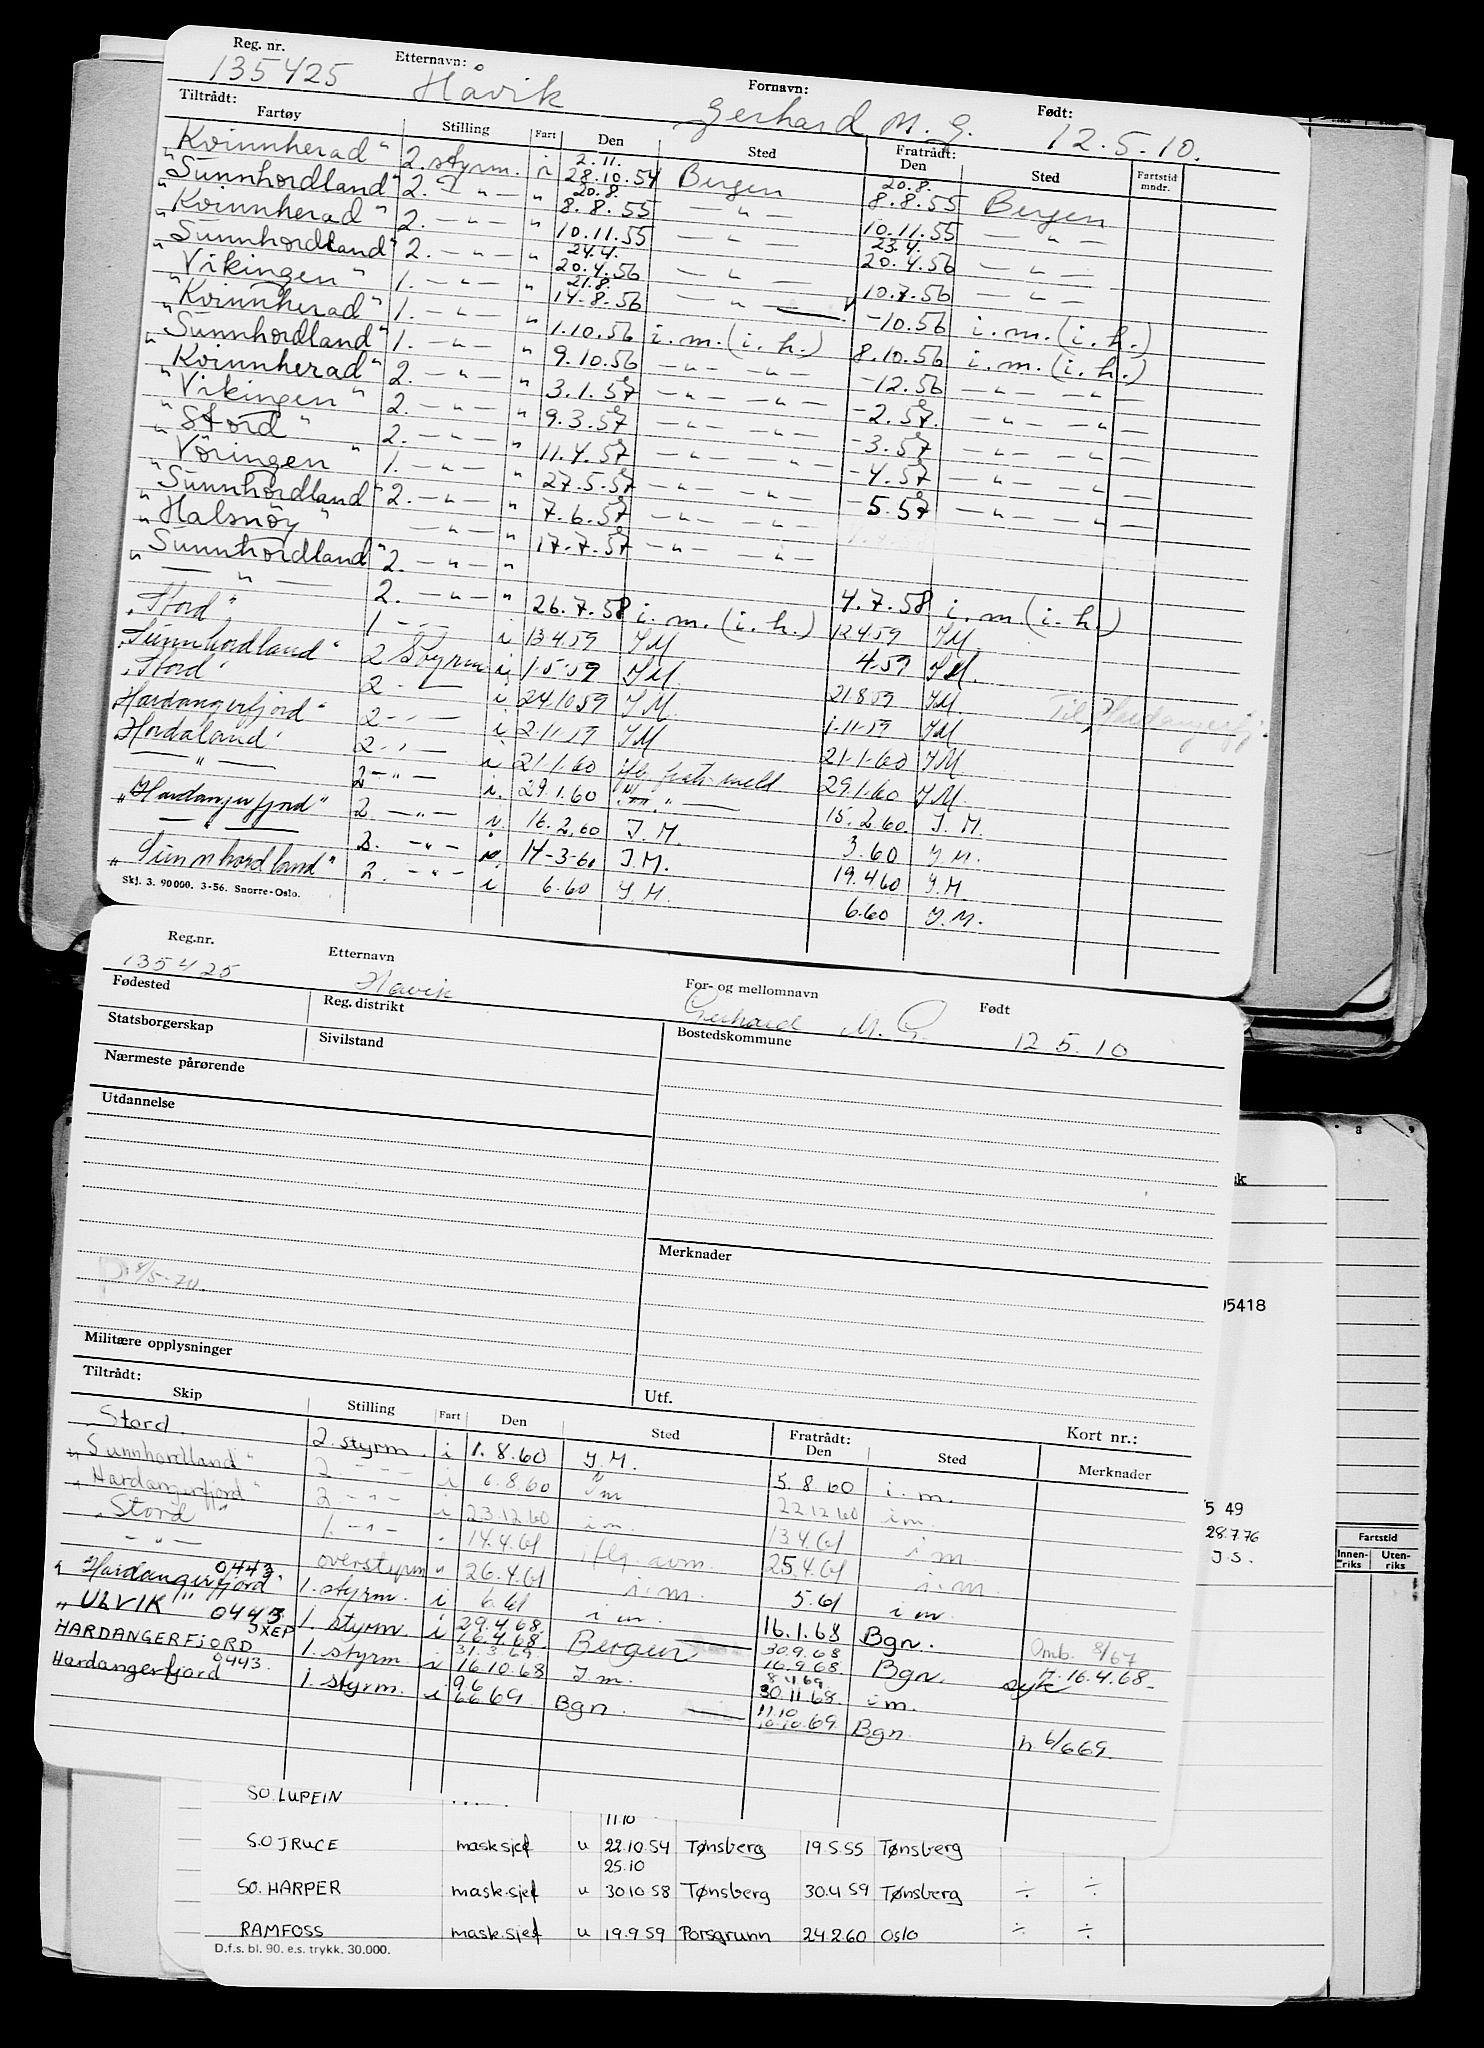 Reg. nr. Etternavn: Fornavn: Født:
135425 Håvik Gerhard M. G. 12.5.10.
Tiltrådt: Fratrådt:
Fartøy Stilling Fart Den Sted Den Sted Fartstid mndr.
2.11. 20.8.
"Kvinnherad" 2. styrm. i 28.10.54 Bergen 8.8.55 Bergen
20.8.
"Sunnhordland" 2. — " — " 8.8.55 — " — 10.11.55 — " —
23.4.
"Kvinnherad" 2. — " — " 10.11.55 — " — 20.4.56 — " —
24.4.
"Sunnhordland" 2. — " — " 20.4.56 — " — 10.7.56 — " —
21.8.
"Vikingen" 1. — " — " 14.8.56 — " — -10.56 i.m.(i.h.)
"Kvinnherad" 1. — " — " 1.10.56 i.m.(i.h.) 8.10.56 i.m.(i.h.)
"Sunnhordland" 1. — " — " 9.10.56 — " — " — -12.56 — " — " —
"Kvinnherad" 2. — " — " 3.1.57 — " — " — -2.57 — " — " —
"Vikingen" 2. — " — " 9.3.57 — " — " — -3.57 — " — " —
"Stord" 2. — " — " 11.4.57 — " — " — -4.57 — " — " —
"Vöringen" 1. — " — " 27.5.57 — " — " — -5.57 — " — " —
"Sunnhordland" 2. — " — " 7.6.57 — " — " —
"Halsnöy" — " — " 17.7.57 — " — " —
"Sunnhordland" 2. — " — "
— " — 2. — " — " 26.7.58 i.m.(i.h.) 4.7.58 i.m.(i.h.)
"Stord" 1 — " — i 13459 IM 12459 IM
"Sunnhordland" 2 Styrm i 1.5.59 IM 4.59 IM.
"Stord" 2 - " — i 24.10.59 IM. 21859 IM. Til Hardangerfj.
Hardangerfjord" 2 - " — i 2.11.59 IM 1.11.59 IM
Hordaland" 2 - " — i 21.1.60 iflg fratr. meld 21.1.60 IM
— " — 2 — " — i. 29.1.60 — " — 29.1.60 IM.
"Hardangerfjord" 2. — " — i. 16.2.60 I.M. 15.2.60. I.M.
— " — 2. — " — i. 14-3-60 I.M. 3.60 I.M.
"Sunnhordland" 2. — " — i 6.60 I.M. 19.460 I.M
6.60 I.M.
Skj. 3. 90000. 3-56. Snorre-Oslo.
Reg.nr. Etternavn For- og mellomnavn Født
135425 Håvik Gerhard M. G. 12.5.10
Fødested Reg. distrikt Bostedskommune
Statsborgerskap Sivilstand
Nærmeste pårørende
Utdannelse
Merknader
8/5-70.
Militære opplysninger
Utf. Kort nr.:
Tiltrådt: Fratrådt:
Skip Stilling Fart Den Sted Den Sted Merknader
"Stord. 2. styrm. i 1.8.60 I.M. 5.8.60 i.m.
"Sunnhordland" 2. — " — i 6.8.60 I m 22.12.60 i m.
"Hardangerfjord" 2 — " — i 23.12.60 i m. 13.4.61 i m
"Stord" 1. — " — " 14.4.61 iflg. avm. 25.4.61 i.m.
— " — overstyrm " 26.4.61 i.m. 5.61 i m
"Hardangerfjord" 0443. 1. styrm. i 6.61 i m. 16.1.68 Bgn. Omb. 8/67
29.4.68. 30.9.68
"ULVIK" 0443 JXEP 1. styrm. i 16.4.68. Bergen 16.9.68 Bgn. n. 16.4.68. syk
31.3.69 8.4.69
HARDANGERFJORD 0443. 1. styrm. i 16.10.68 I m. 30.11.68. i m
9.6 11.10
Hardangerfjord 1. styrm. i 6.6.69. Bgn. 10.10.69. Bgn. n. 6/6 69.
sk
05418
8 9
5 49
28.7.76
J.S.
Fartstid
Innen-riks Uten-riks
SO. LUPEIN
11.10
S.O JRUCE mask.sjef u 22.10.54 Tønsberg 19.5.55 Tønsberg
25.10
SO. HARPER mask.sjef u 30.10.58 Tønsberg 30.4.59 Tønsberg ÷ ÷
RAMFOSS mask.sjef u 19.9.59 Porsgrunn 24.2.60 Oslo ÷ ÷
D.f.s. bl. 90. e.s. trykk. 30.000.